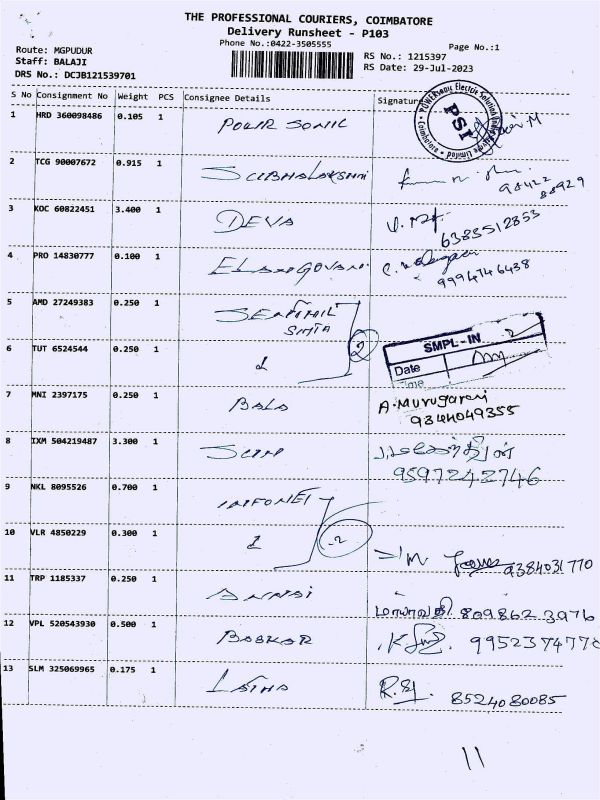 THE PROFESSIONAL COURIERS, COIMBATORE
Delivery Runsheet - P103
Phone No.:0422-3505555
Page No.:1
Route: MGPUDUR
Staff: BALAJI
DRS No.: DCJB121539701
RS No.: 1215397
RS Date: 29-Jul-2023
S No Consignment No Weight PCS Consignee Details Signature
1 HRD 360098486 0.105 1 POWER SONIC
PSI
2 TCG 90007672 0.915 1 SUBHALAKSHMI 98422
88929
3 KOC 60822451 3.400 1 DEVA
6383512853
4 PRO 14830777 0.100 1 ELANGOVAN
9994746438
5 AMD 27249383 0.250 1
2
SMPL-IN
Date
Time
6 TUT 6524544 0.250 1 1
7 MNI 2397175 0.250 1 BALA A.Murugarani
9344049355
8 IXM 504219487 3.300 1
9597242746
9 NKL 8095526 0.700 1
10 VLR 4850229 0.300 1 1 2 9384031770
11 TRP 1185337 0.250 1 ANNAI
மாயாவதி 809862 3976
12 VPL 520543930 0.500 1 BASKAR
13 SLM 325069965 0.175 1 LATHA 8524080085
11